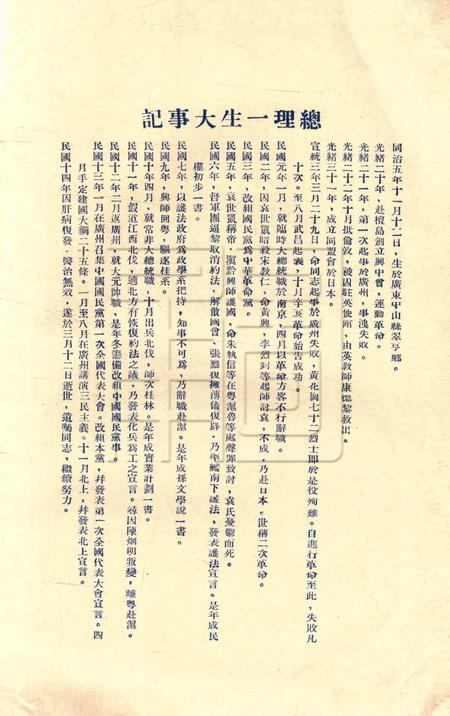 總理一生大事記
同治五年十一月十二日，生於廣東中山縣翠亨鄉。
光緒二十年，赴檀島創立興中會，運動革命。
光緒二十一年，第一次起事於廣州，事洩失敗。
光緒二十二年十月抵倫敦，被囚駐英使館，由英教師康德黎救出。
光緒三十一年，成立同盟會於日本。
宣統三年三月二十九日，命同志起事於廣州失敗，黃花崗七十二烈士即於是役殉難。自進行革命至此，失敗凡
十次。至八月武昌起義，十月辛亥革命始告成功。
民國元年一月，就臨時大總統職於南京，四月以革命方畧不行辭職。
民國二年，因袁世凱暗殺宋教仁，命黃興，李烈鈞等起師討袁，不成，乃赴日本。世稱二次革命。
民國三年，改組國民黨爲中華革命黨。
民國五年，袁世凱稱帝，滇黔興師護國，命朱執信等在粤滬魯等處聲罪致討，袁氏憂鬱而死。
民國六年，督軍團逼黎取消約法，解散國會，張勳復擁溥儀復辟，乃率艦南下護法，發表護法宣言。是年成民
權初步一書。
民國七年，以護法政府爲政學系把持，知事不可爲，乃辭職赴滬。是年成孫文學說一書。
民國九年，興師回粤，驅逐桂系。
民國十年四月，就常非大總統職，十月出兵北伐，師次桂林。是年成實業計劃一書。
民國十一年，假道江西北伐，適北方有恢復約法之議，乃發表化兵爲工之宣言。尋因陳炯明叛變，離粤赴滬。
民國十二年二月返廣州，就大元帥職，是年冬籌備改組中國國民黨事。
民國十三年一月在廣州召集中國國民黨第一次全國代表大會。改組本黨，幷發表第一次全國代表大會宣言。四
月手定建國大綱二十五條。一月至八月在廣州講演三民主義。十一月北上，幷發表北上宣言。
民國十四年因肝病復發，醫治無效，遂於三月十二日逝世，遺囑同志，繼續努力。